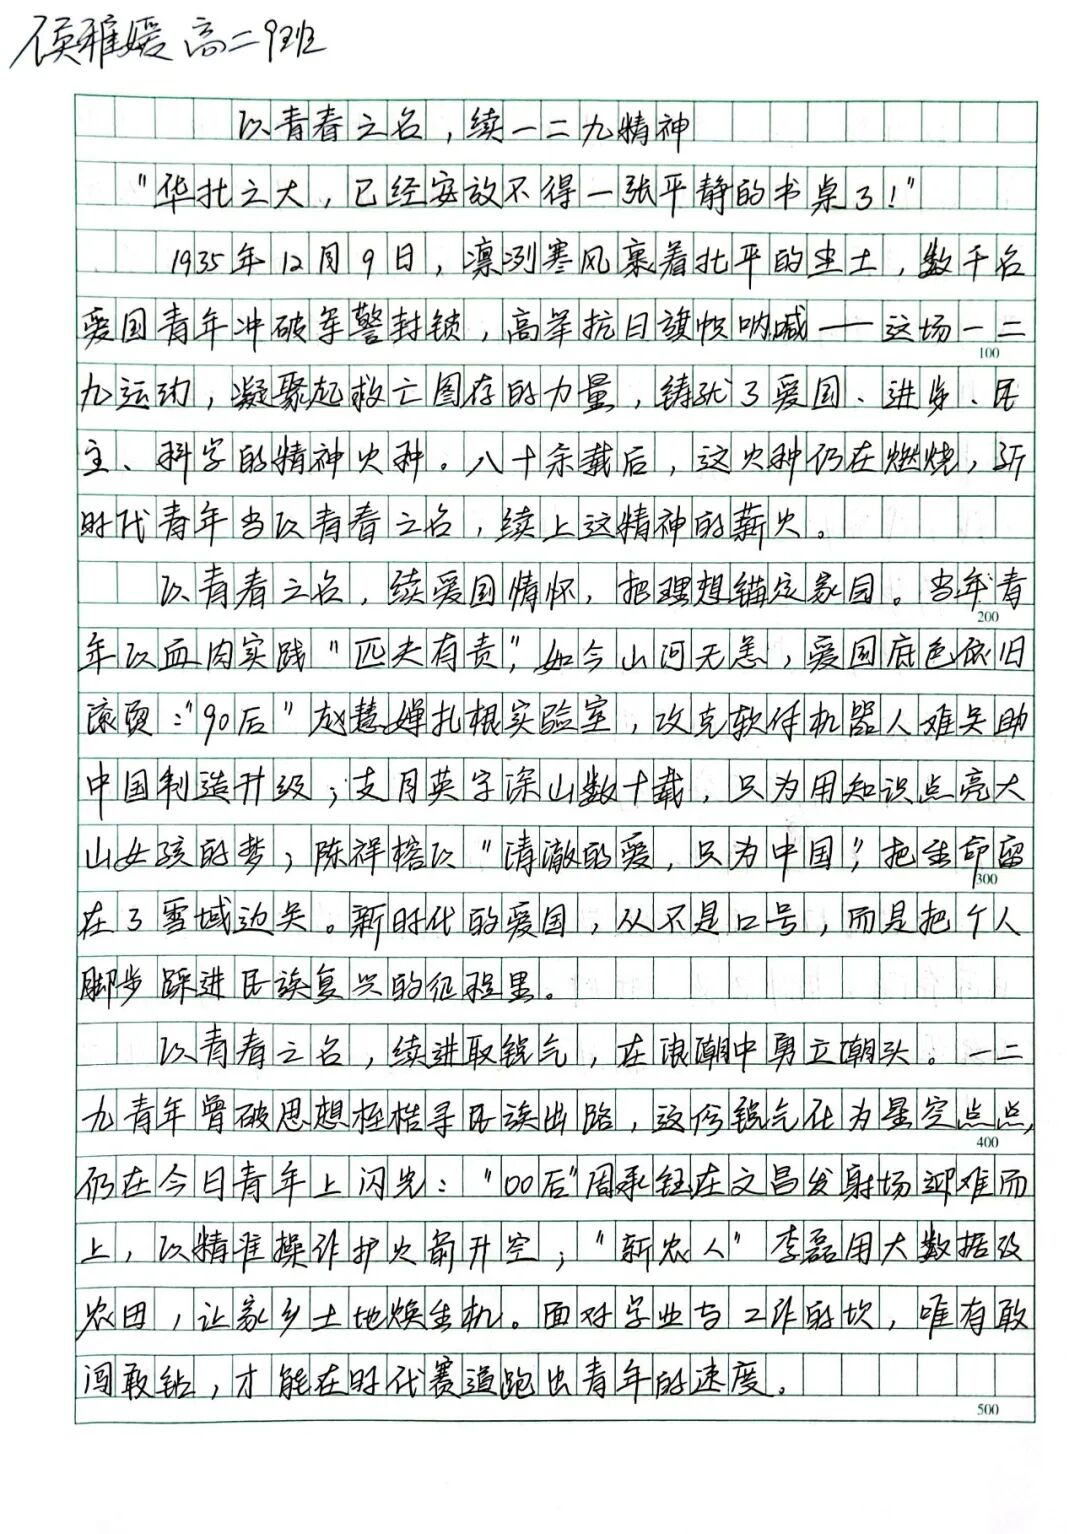 侯雅媛 高二9班
以青春之名，续一二九精神
"华北之大，已经安放不得一张平静的书桌了！"
1935年12月9日，凛冽寒风裹着北平的尘土，数千名
爱国青年冲破军警封锁，高举抗日旗帜呐喊——这场一二
100
九运动，凝聚起救亡图存的力量，铸就了爱国、进步、民
主、科学的精神火种。八十余载后，这火种仍在燃烧，新
时代青年当以青春之名，续上这精神的薪火。
以青春之名，续爱国情怀，把理想锚定家国。当年青
200
年以血肉实践"匹夫有责"，如今山河无恙，爱国底色依旧
滚烫："90后"赵慧婵扎根实验室，攻克软件机器人难关助
中国制造升级；支月英守深山数十载，只为用知识点亮大
山女孩的梦；陈祥榕以"清澈的爱，只为中国"，把生命留
300
在了雪域边关。新时代的爱国，从不是口号，而是把个人
脚步踩进民族复兴的征程里。
以青春之名，续进取锐气，在浪潮中勇立潮头。一二
九青年曾破思想桎梏寻民族出路，这份锐气化为星空点点，
400
仍在今日青年上闪光："00后"周承钰在文昌发射场迎难而
上，以精准操作护火箭升空；"新农人"李磊用大数据改
农田，让家乡土地焕生机。面对学业与工作的坎，唯有敢
闯敢钻，才能在时代赛道跑出青年的速度。
500